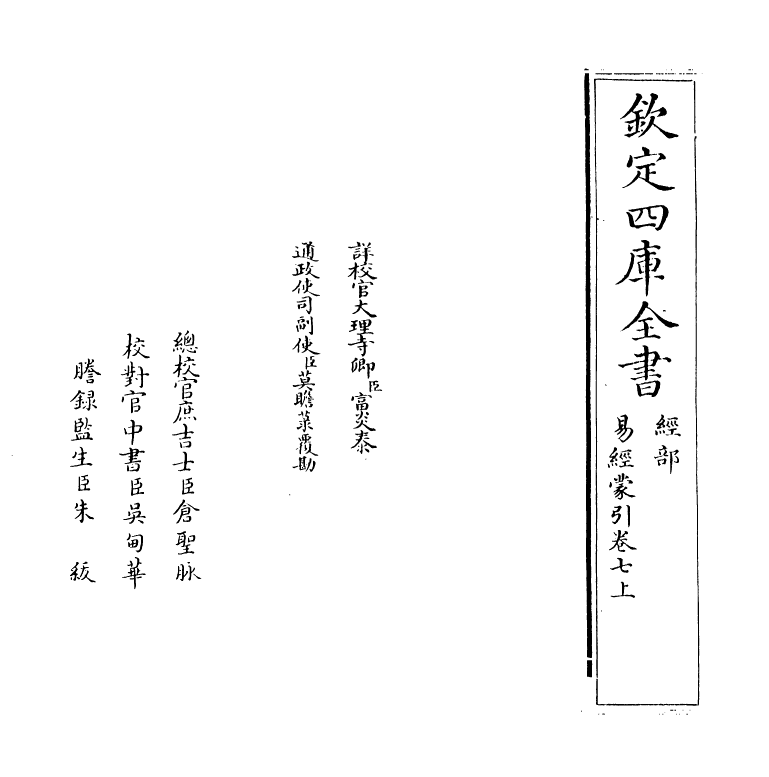 欽定四庫全書
經部
易經蒙引卷七上
詳校官大理寺卿臣富炎泰
通政使司副使臣莫瞻菉覆勘
總校官庶吉士臣倉聖脉
校對官中書臣吳甸華
謄録監生臣朱紱